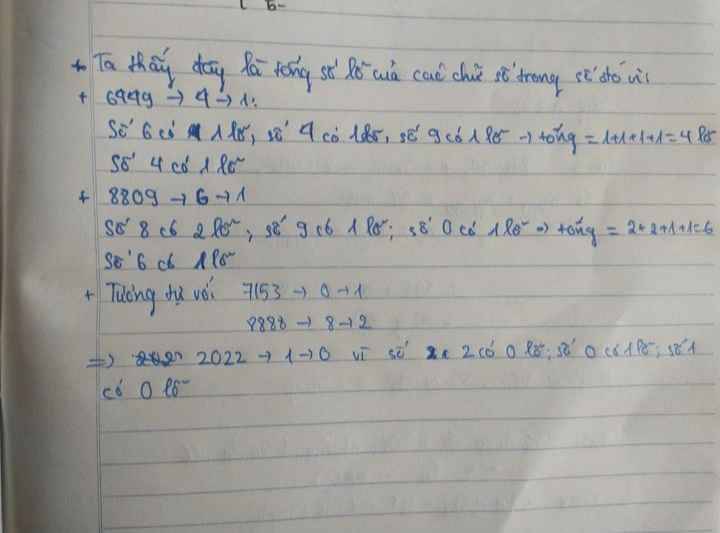 + Ta thấy đây là tổng số lỗ của các chữ số trong số đó vì
+ 6949 → 4 → 1:
Số 6 có 1 lỗ, số 4 có 1 lỗ, số 9 có 1 lỗ → tổng = 1+1+1+1=4 lỗ
Số 4 có 1 lỗ
+ 8809 → 6 → 1
Số 8 có 2 lỗ, số 9 có 1 lỗ; số 0 có 1 lỗ => tổng = 2+2+1+1=6
Số 6 có 1 lỗ
+ Tương tự với 7153 → 0 → 1
8888 → 8 → 2
=> 2022 → 1 → 0 vì số 2 có 0 lỗ; số 0 có 1 lỗ; số 1
có 0 lỗ